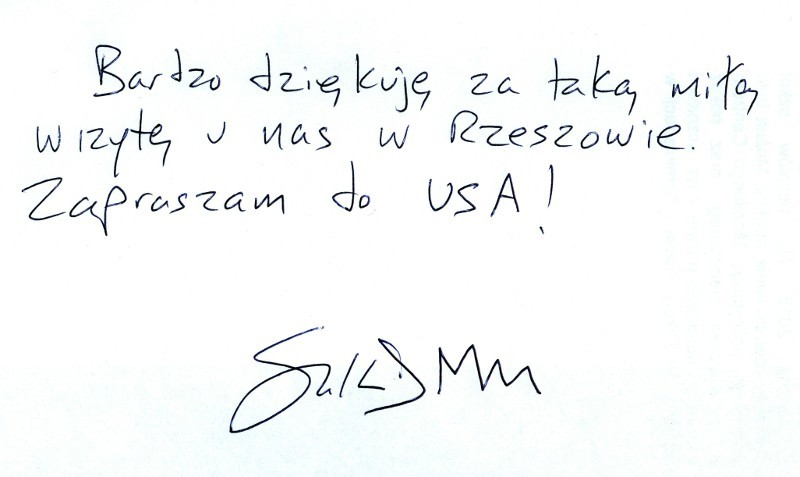 Bardzo dziękuję za taką miłą
wizytę u nas w Rzeszowie.
Zapraszam do USA!